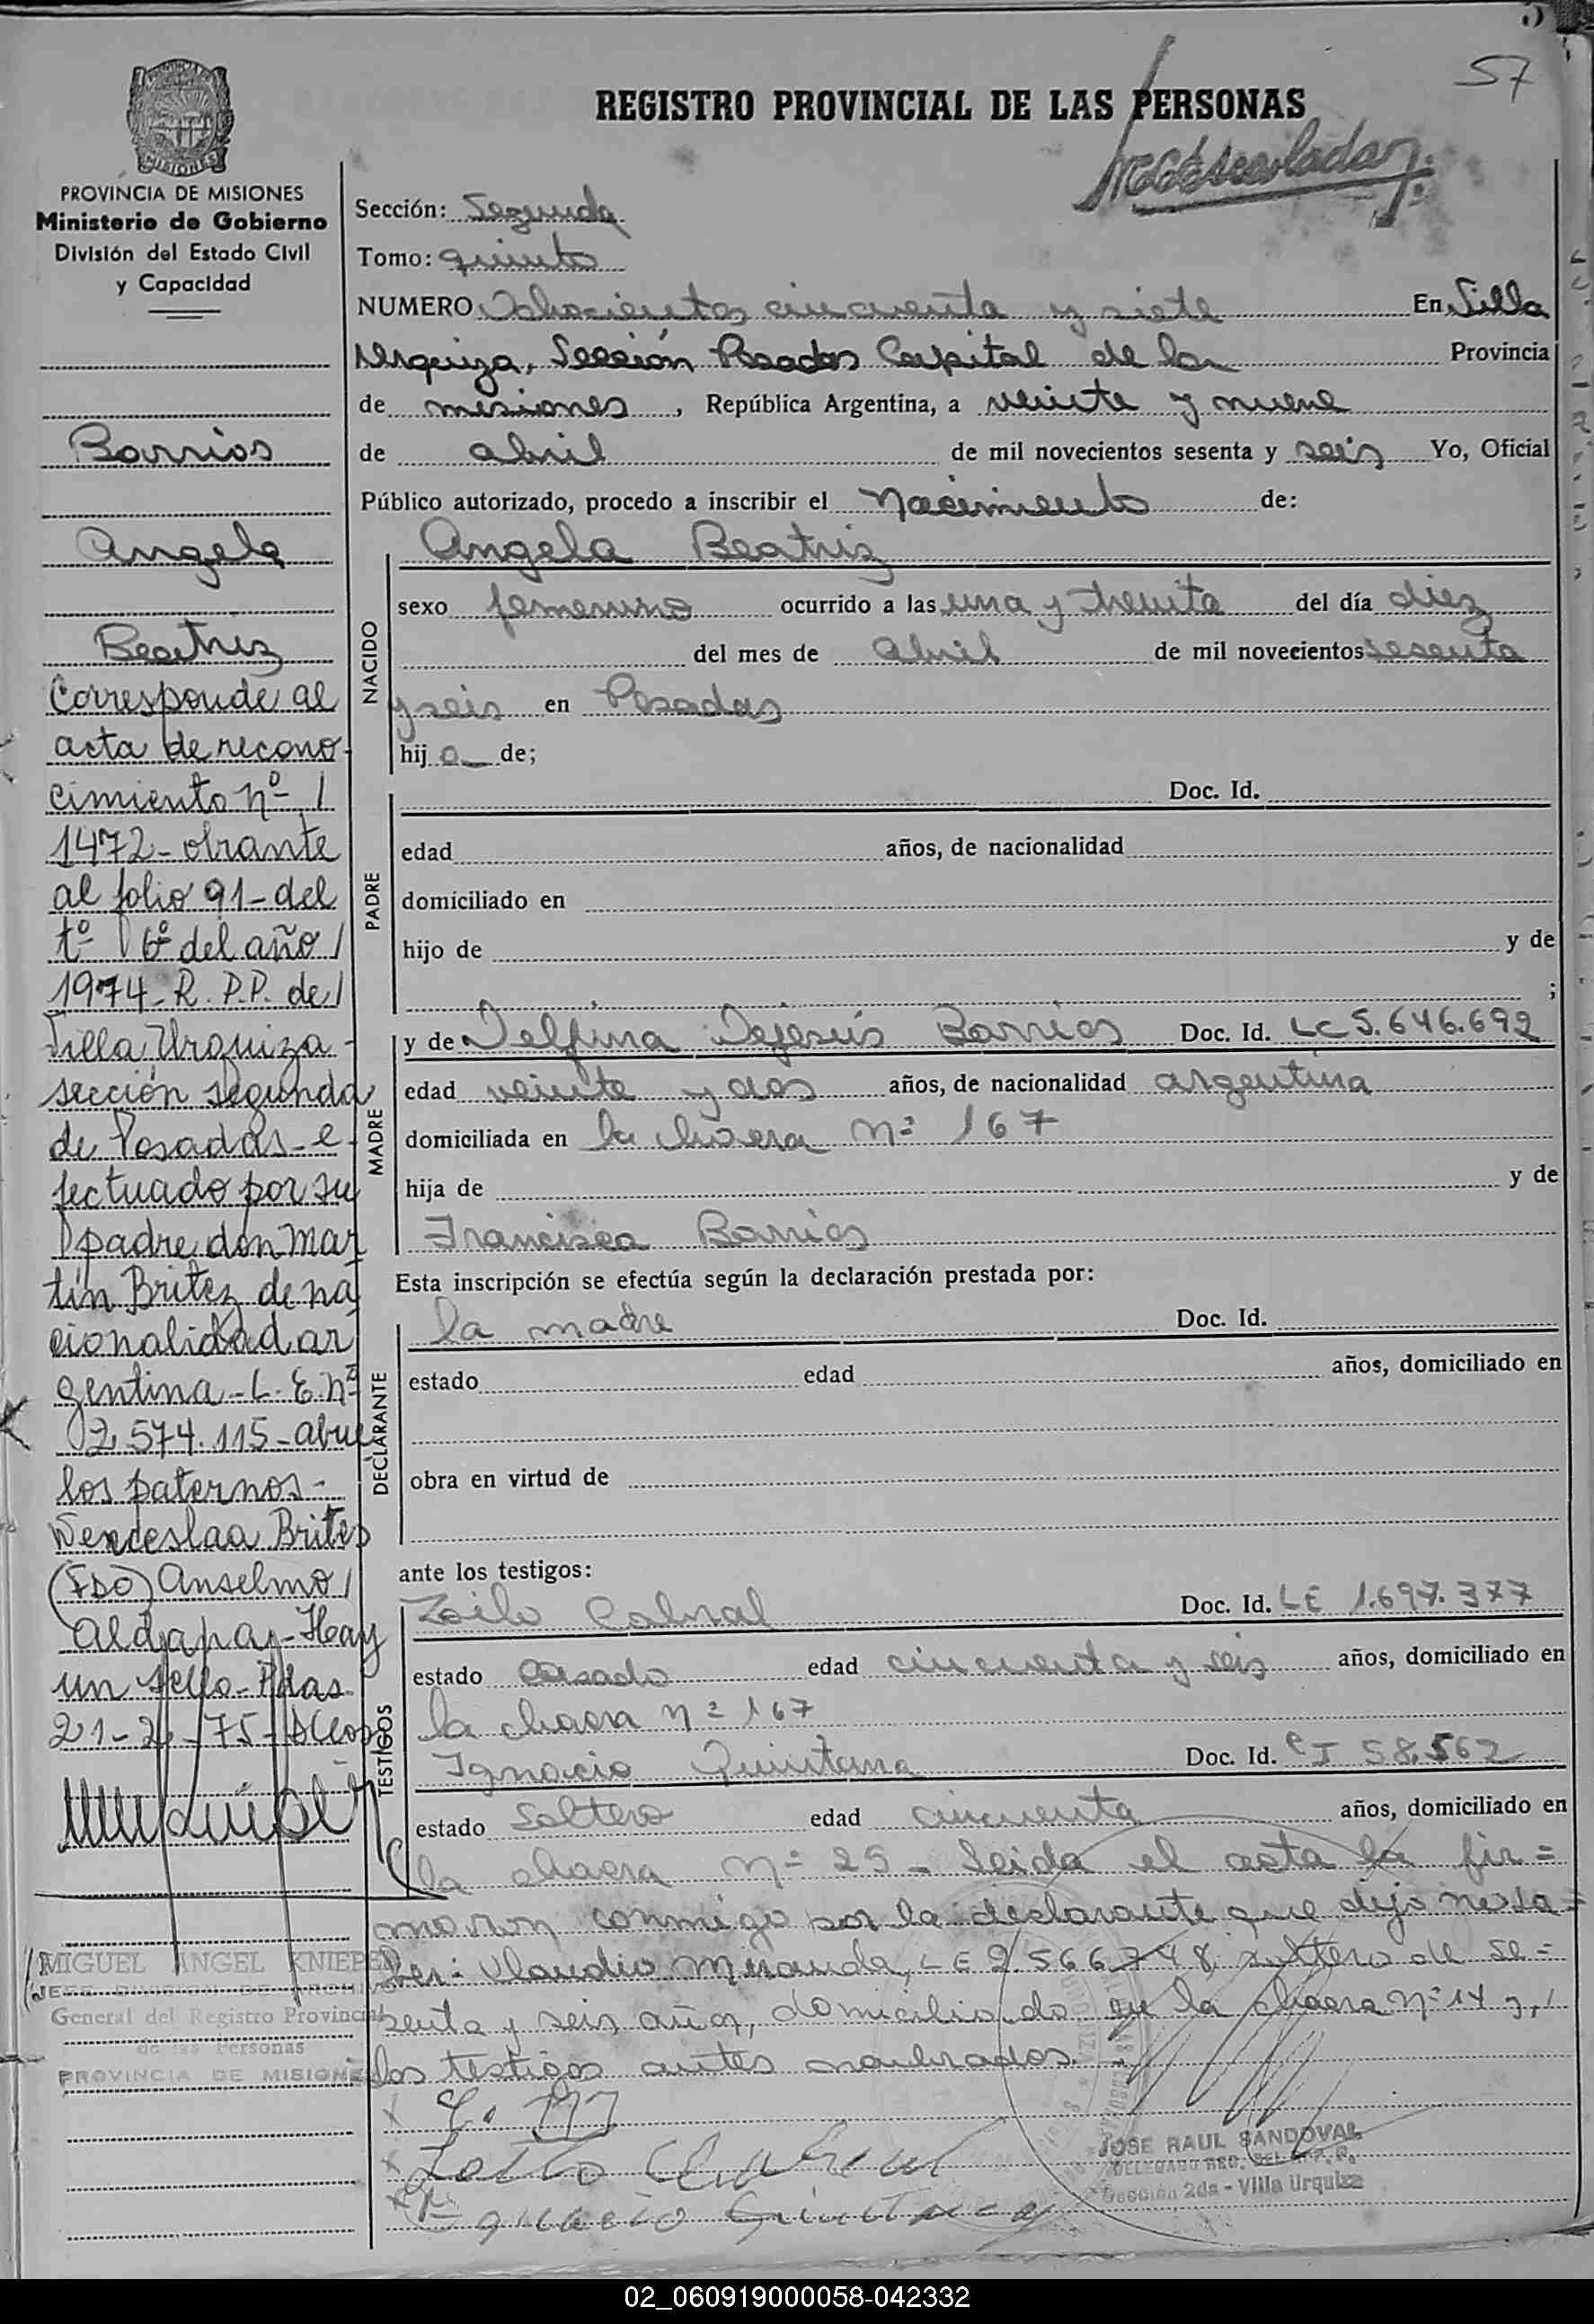 57
REGISTRO PROVINCIAL DE LAS PERSONAS
MISIONES
PROVINCIA DE MISIONES
Ministerio de Gobierno
División del Estado Civil
y Capacidad
Barrios
Angela
Beatriz
Corresponde al
acta de recono-
cimiento nº /
1472 - obrante
al folio 91 - del
tº 6º del año /
1974 - R. P.P. de /
Villa Urquiza -
sección segunda
de Posadas - e-
fectuado por su
padre don Mar
tín Britez de na
cionalidad ar
gentina - L. E. nº
2.574.115 - abue
los paternos -
Wenceslaa Britez
(FDO) Anselmo /
Aldapa - Hay
un sello - Pdas
21-2-75
MIGUEL ANGEL KNIEPER
JEFE DIVISION DE ARCHIVO
General del Registro Provincial
de las Personas
PROVINCIA DE MISIONES
Sección: Segunda
Tomo: quinto
NUMERO Ochocientos cincuenta y siete En Villa
Urquiza, Sección Posadas Capital de la Provincia
de misiones, República Argentina, a veinte y nueve
de abril de mil novecientos sesenta y seis Yo, Oficial
Público autorizado, procedo a inscribir el Nacimiento de:
NACIDO
Angela Beatriz
sexo femenino ocurrido a las una y treinta del día diez
del mes de abril de mil novecientos sesenta
y seis en Posadas
hija de;
PADRE
Doc. Id.
edad años, de nacionalidad
domiciliado en
hijo de y de
;
MADRE
y de Delfina Dejesús Barrios Doc. Id. LC 5.646.692
edad veinte y dos años, de nacionalidad argentina
domiciliada en la chacra Nº 167
hija de y de
Francisca Barrios
Esta inscripción se efectúa según la declaración prestada por:
DECLARANTE
la madre Doc. Id.
estado edad años, domiciliado en
obra en virtud de
ante los testigos:
TESTIGOS
Zoilo Cabral Doc. Id. LE 1.697.377
estado Casado edad cincuenta y seis años, domiciliado en
la chacra Nº 167
Ignacio Quintana Doc. Id. CI 58.562
estado Soltero edad cincuenta años, domiciliado en
la chacra Nº 25 - Leida el acta la fir=
maron conmigo por la declarante que dijo no sa=
ber: Claudio Miranda, LE 2.566.748 soltero de se=
senta y seis años, domiciliado en la chacra Nº 14 y, /
los testigos antes nombrados.
Zoilo Cabral
Ignacio Quintana
JOSE RAUL SANDOVAL
DELEGADO REG. DEL
Sección 2da - Villa Urquiza
02_060919000058-042332